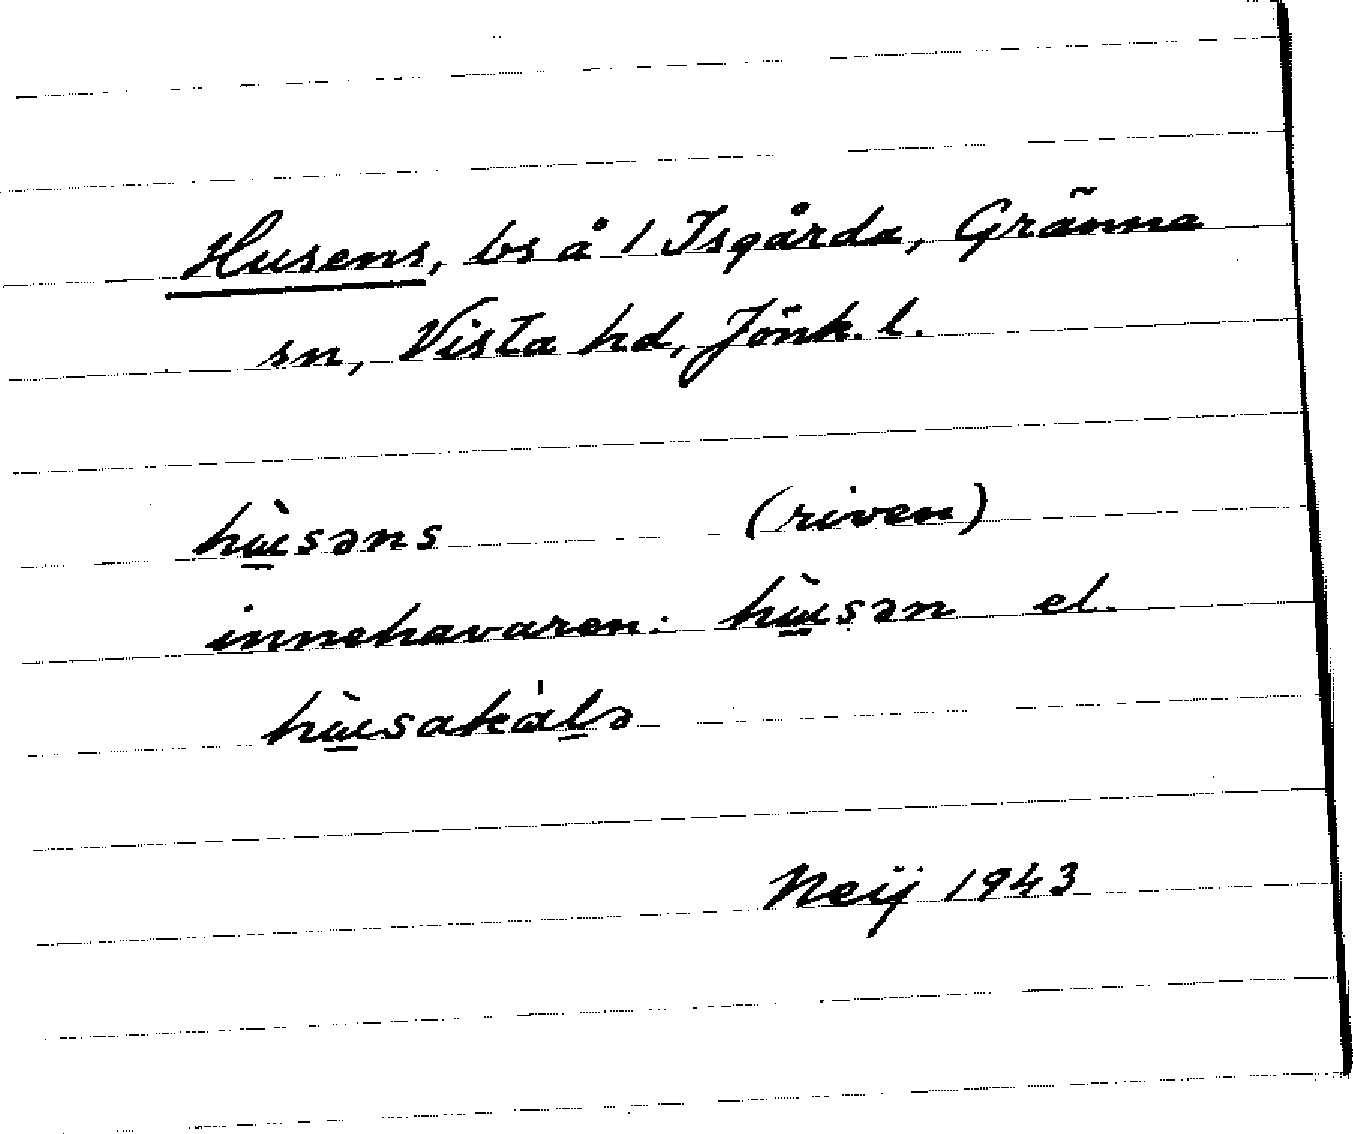 Husens, bs å 1 Isgårda, Gränna
sn, Vista hd, Jönk. l.
hùsəns (riven)
innehavaren: hùsən el.
hùsakàlə
Neij 1943